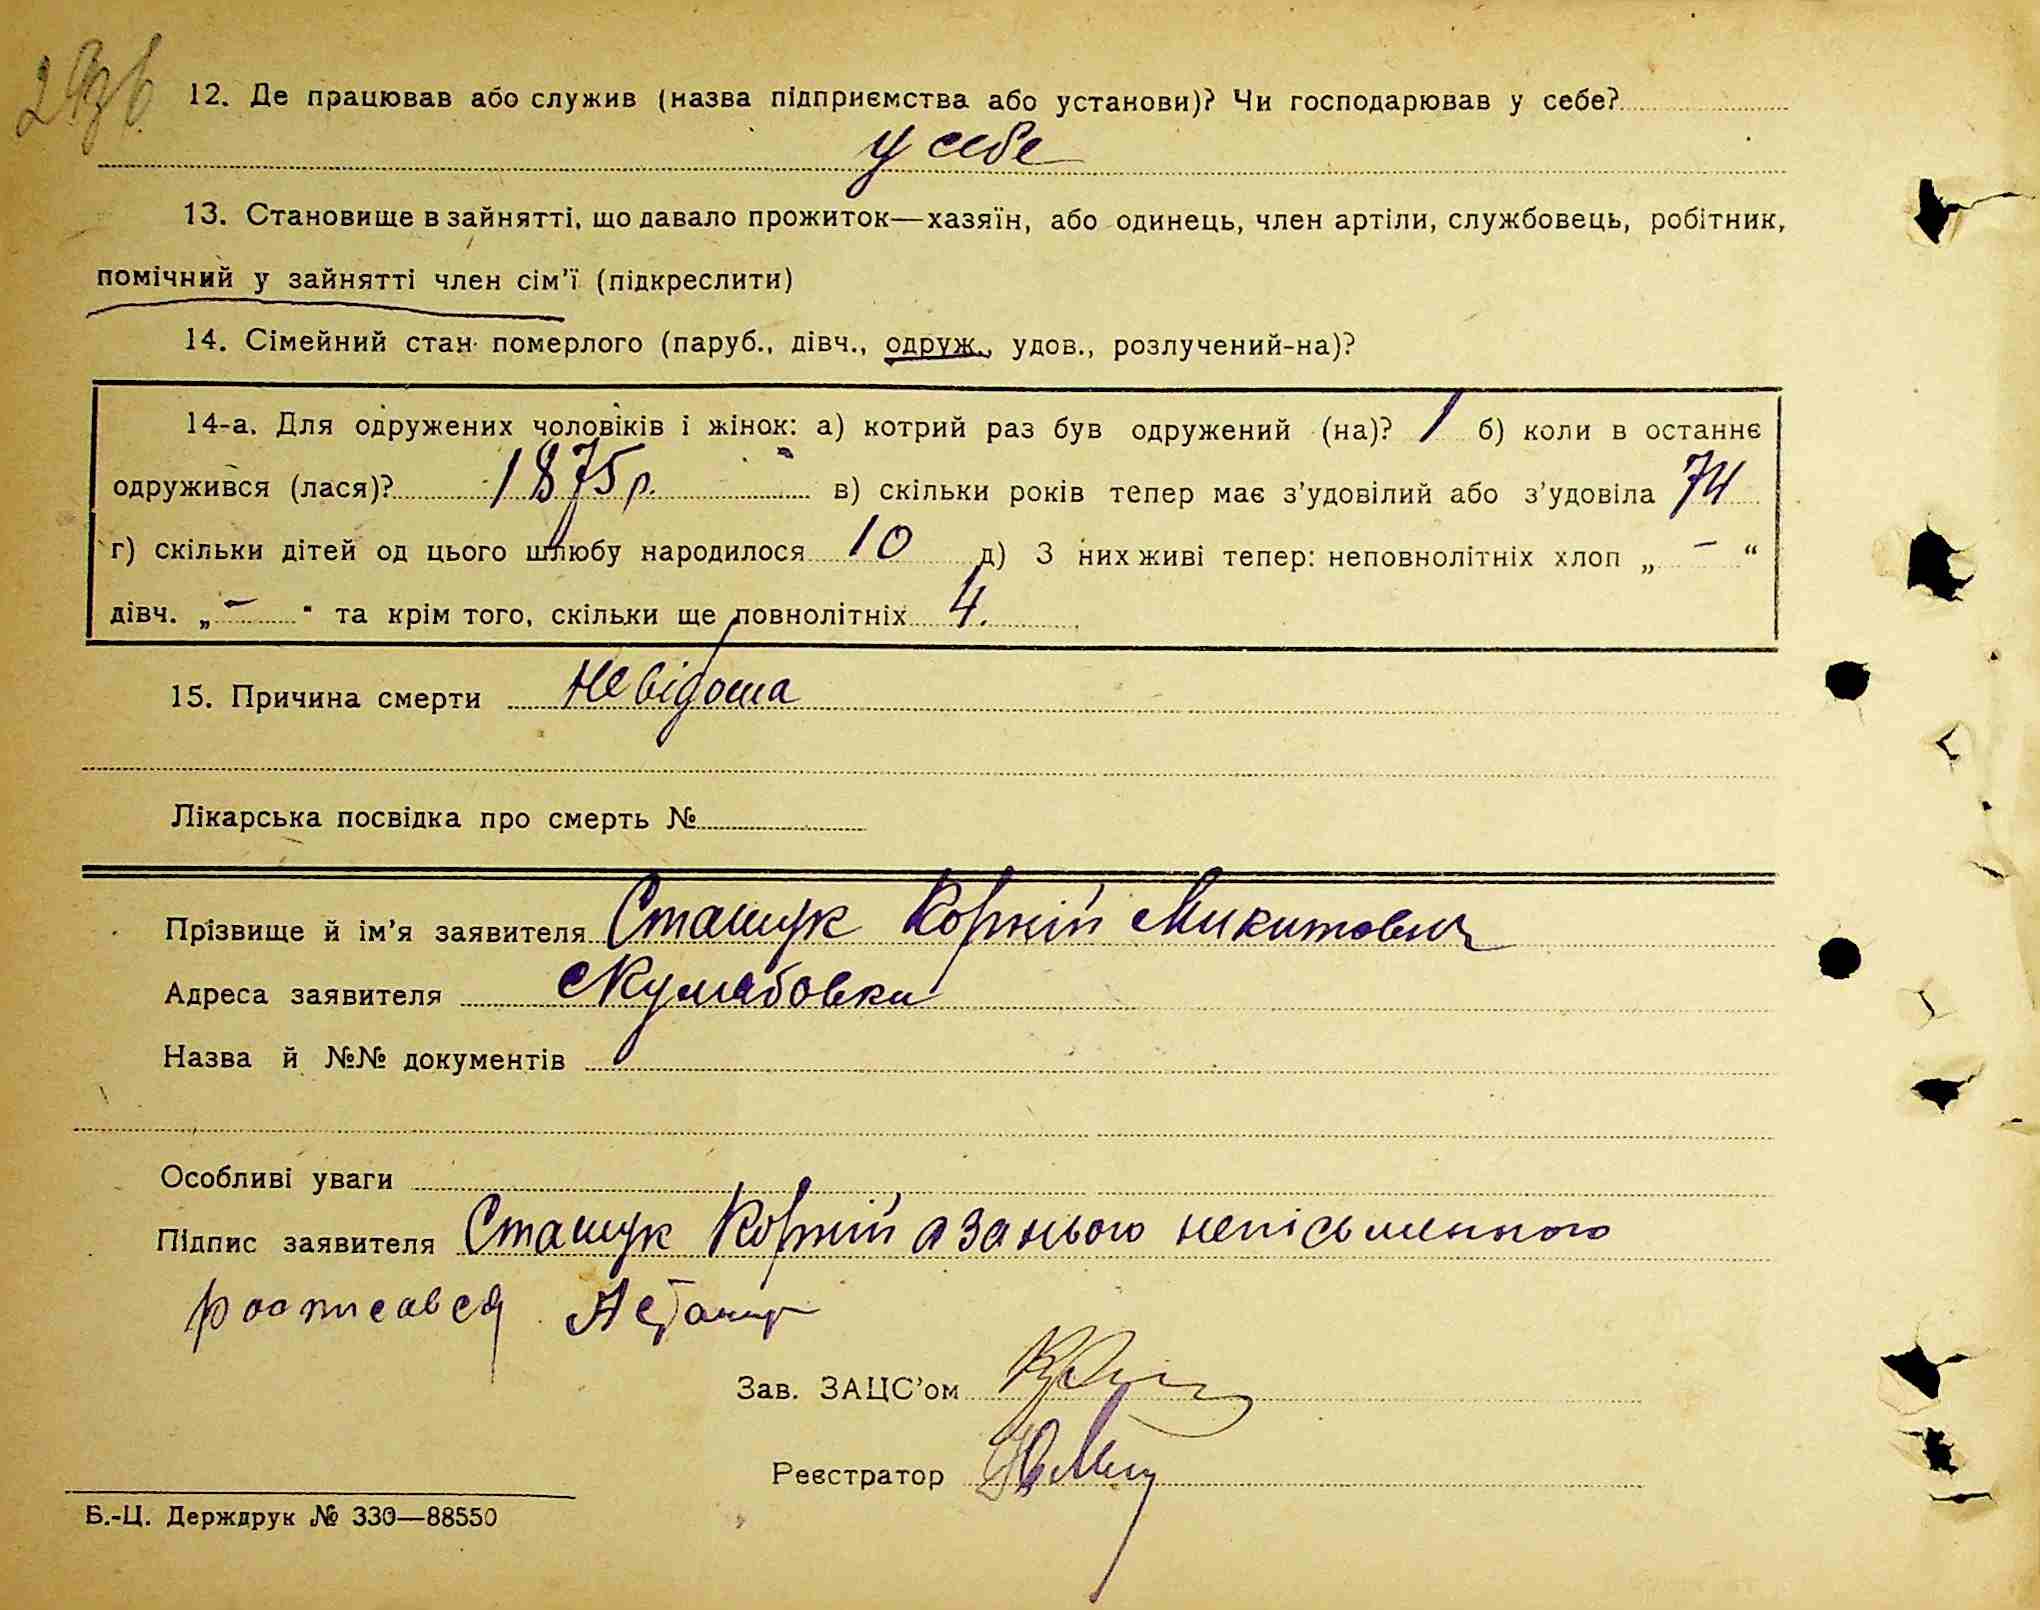 12. Де працював або служив (назва підприємства або установи)? Чи господарював у себе?
у себе
13. Становище в зайнятті, що давало прожиток—хазяїн, або одинець, член артіли, службовець, робітник,
помічний у зайнятті член сім'ї (підкреслити)
14. Сімейний стан померлого (паруб., дівч., одруж., удов., розлучений-на)?
14-а. Для одружених чоловіків і жінок: а) котрий раз був одружений (на)? 1 б) коли в останнє
одружився (лася)? 1875 р. в) скільки років тепер має з'удовілий або з'удовіла 74
г) скільки дітей од цього шлюбу народилося 10 д) З них живі тепер: неповнолітніх хлоп „ — “
дівч. „ — “ та крім того, скільки ще повнолітніх 4.
15. Причина смерти невідома
Лікарська посвідка про смерть №
Прізвище й ім'я заявителя Сташук Корній Микитович
Адреса заявителя
Назва й №№ документів
Особливі уваги
Підпис заявителя Сташук Корній а за нього неписьменного
росписався
Зав. ЗАЦС'ом
Реєстратор
Б.-Ц. Держдрук № 330—88550